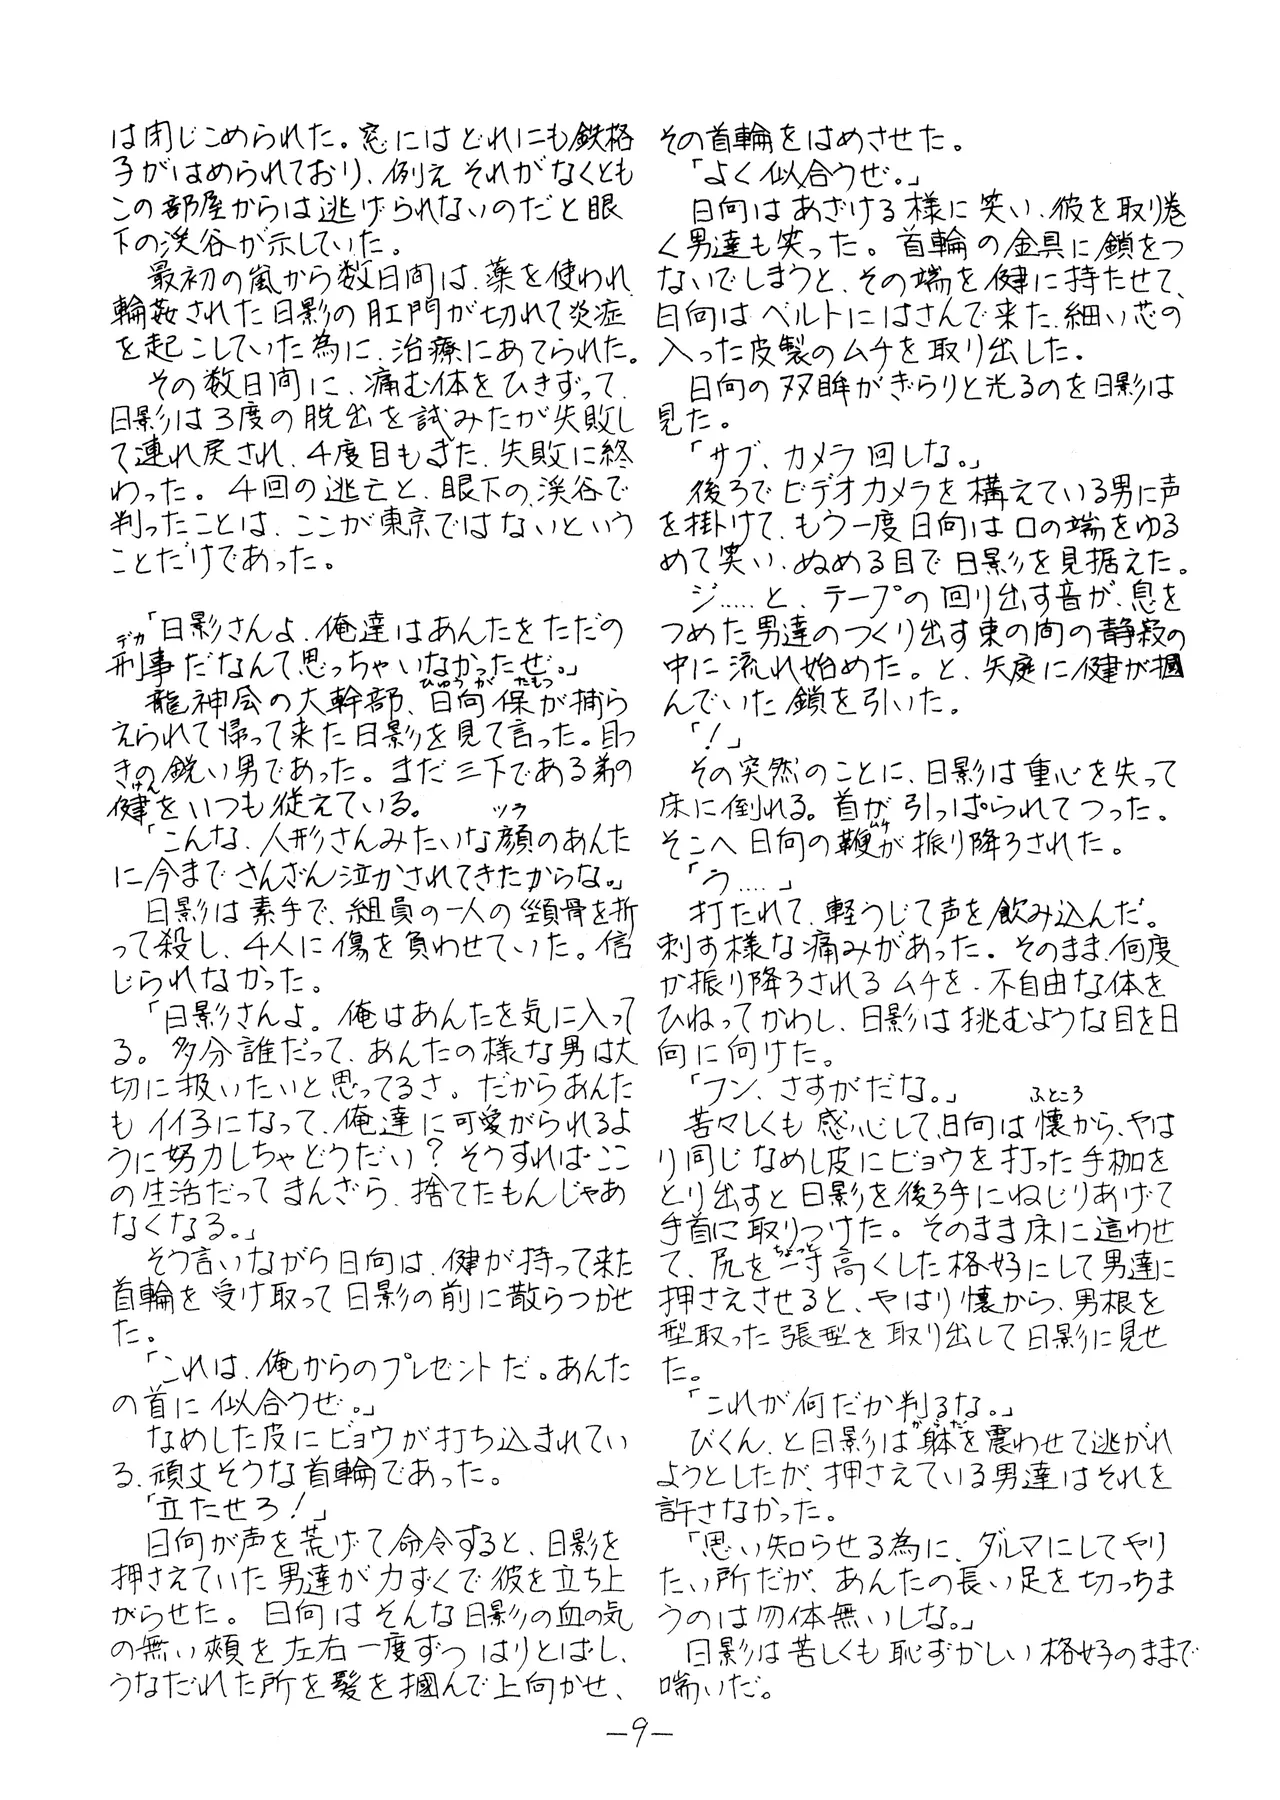 は閉じこめられた。窓にはどれにも鉄格
子がはめられており、例えそれがなくとも
この部屋からは逃げられないのだと眼
下の渓谷が示していた。
最初の嵐から数日間は、薬を使われ
輪姦された日影の肛門が切れて炎症
を起こしていた為に、治療にあてられた。
その数日間に、痛む体をひきずって、
日影は3度の脱出を試みたが失敗し
て連れ戻され、4度目もまた、失敗に終
わった。4回の逃亡と、眼下の渓谷で
判ったことは、ここが東京ではないという
ことだけであった。
「日影さんよ、俺達はあんたをただの
デカ
刑事だなんて思っちゃいなかったぜ。」
ひゅうが たもつ
龍神会の大幹部、日向保が捕ら
えられて帰って来た日影を見て言った。目つ
きの鋭い男であった。まだ三下である弟の
けん
健をいつも従えている。
ツラ
「こんな、人形さんみたいな顔のあんた
に今までさんざん泣かされてきたからな。」
日影は素手で、組員の一人の頸骨を折
って殺し、4人に傷を負わせていた。信
じられなかった。
「日影さんよ。俺はあんたを気に入って
る。多分誰だって、あんたの様な男は大
切に扱いたいと思ってるさ。だからあんた
もイイ子になって、俺達に可愛がられるよ
うに努力しちゃどうだい？そうすればここ
の生活だってまんざら、捨てたもんじゃあ
なくなる。」
そう言いながら日向は、健が持って来た
首輪を受け取って日影の前に散らつかせ
た。
「これは、俺からのプレゼントだ。あんた
の首に似合うぜ。」
なめした皮にビョウが打ち込まれてい
る、頑丈そうな首輪であった。
「立たせろ！」
日向が声を荒げて命令すると、日影を
押さえていた男達が力ずくで彼を立ち上
がらせた。日向はそんな日影の血の気
の無い頬を左右一度ずつはりとばし、
うなだれた所を髪を摑んで上向かせ、
その首輪をはめさせた。
「よく似合うぜ。」
日向はあざける様に笑い、彼を取り巻
く男達も笑った。首輪の金具に鎖をつ
ないでしまうと、その端を健に持たせて、
日向はベルトにはさんで来た、細い芯の
入った皮製のムチを取り出した。
日向の双眸がぎらりと光るのを日影は
見た。
「サブ、カメラ回しな。」
後ろでビデオカメラを構えている男に声
を掛けて、もう一度日向は口の端をゆる
めて笑い、ぬめる目で日影を見据えた。
ジ.....と、テープの回り出す音が、息を
つめた男達のつくり出す束の間の静寂の
中に流れ始めた。と、矢庭に健が摑
んでいた鎖を引いた。
「！」
その突然のことに、日影は重心を失って
床に倒れる。首が引っぱられてつった。
ムチ
そこへ日向の鞭が振り降ろされた。
「う....」
打たれて、軽うじて声を飲み込んだ。
刺す様な痛みがあった。そのまま、何度
か振り降ろされるムチを、不自由な体を
ひねってかわし、日影は挑むような目を日
向に向けた。
「フン、さすがだな。」
ふところ
苦々しくも感心して、日向は懐から、やは
り同じなめし皮にビョウを打った手枷を
とり出すと日影を後ろ手にねじりあげて
手首に取りつけた。そのまま床に這わせ
ちょっと
て、尻を一寸高くした格好にして男達に
押さえさせると、やはり懐から、男根を
型取った張型を取り出して日影に見せ
た。
「これが何だか判るな。」
からだ
びくん、と日影は躰を震わせて逃がれ
ようとしたが、押さえている男達はそれを
許さなかった。
「思い知らせる為に、ダルマにしてやり
たい所だが、あんたの長い足を切っちま
うのは勿体無いしな。」
日影は苦しくも恥ずかしい格好のままで
喘いだ。
—9—